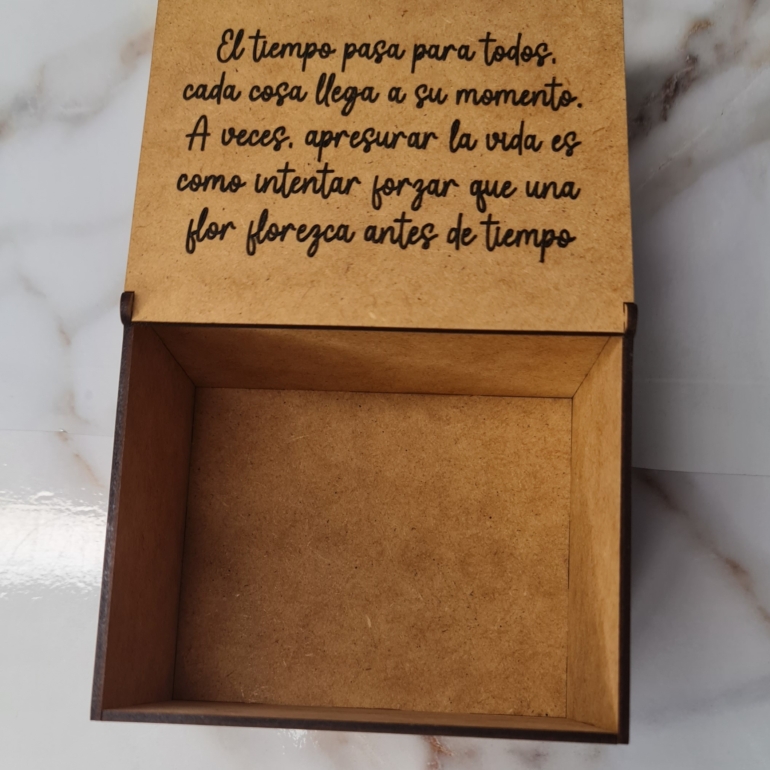 El tiempo pasa para todos.
cada cosa llega a su momento.
A veces, apresurar la vida es
como intentar forzar que una
flor florezca antes de tiempo